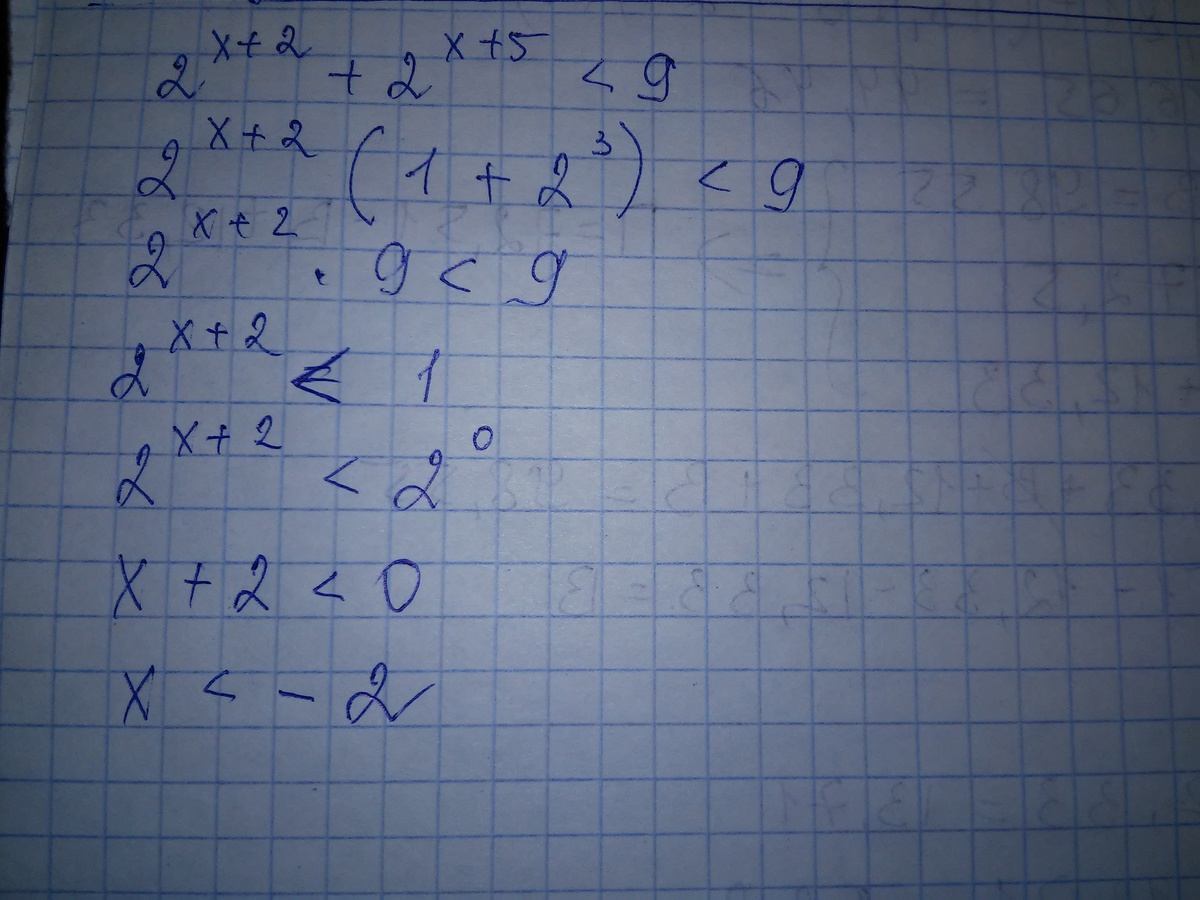 2^{x+2} + 2^{x+5} < 9
2^{x+2} (1 + 2^3) < 9
2^{x+2} · 9 < 9
2^{x+2} < 1
2^{x+2} < 2^0
x + 2 < 0
x < - 2